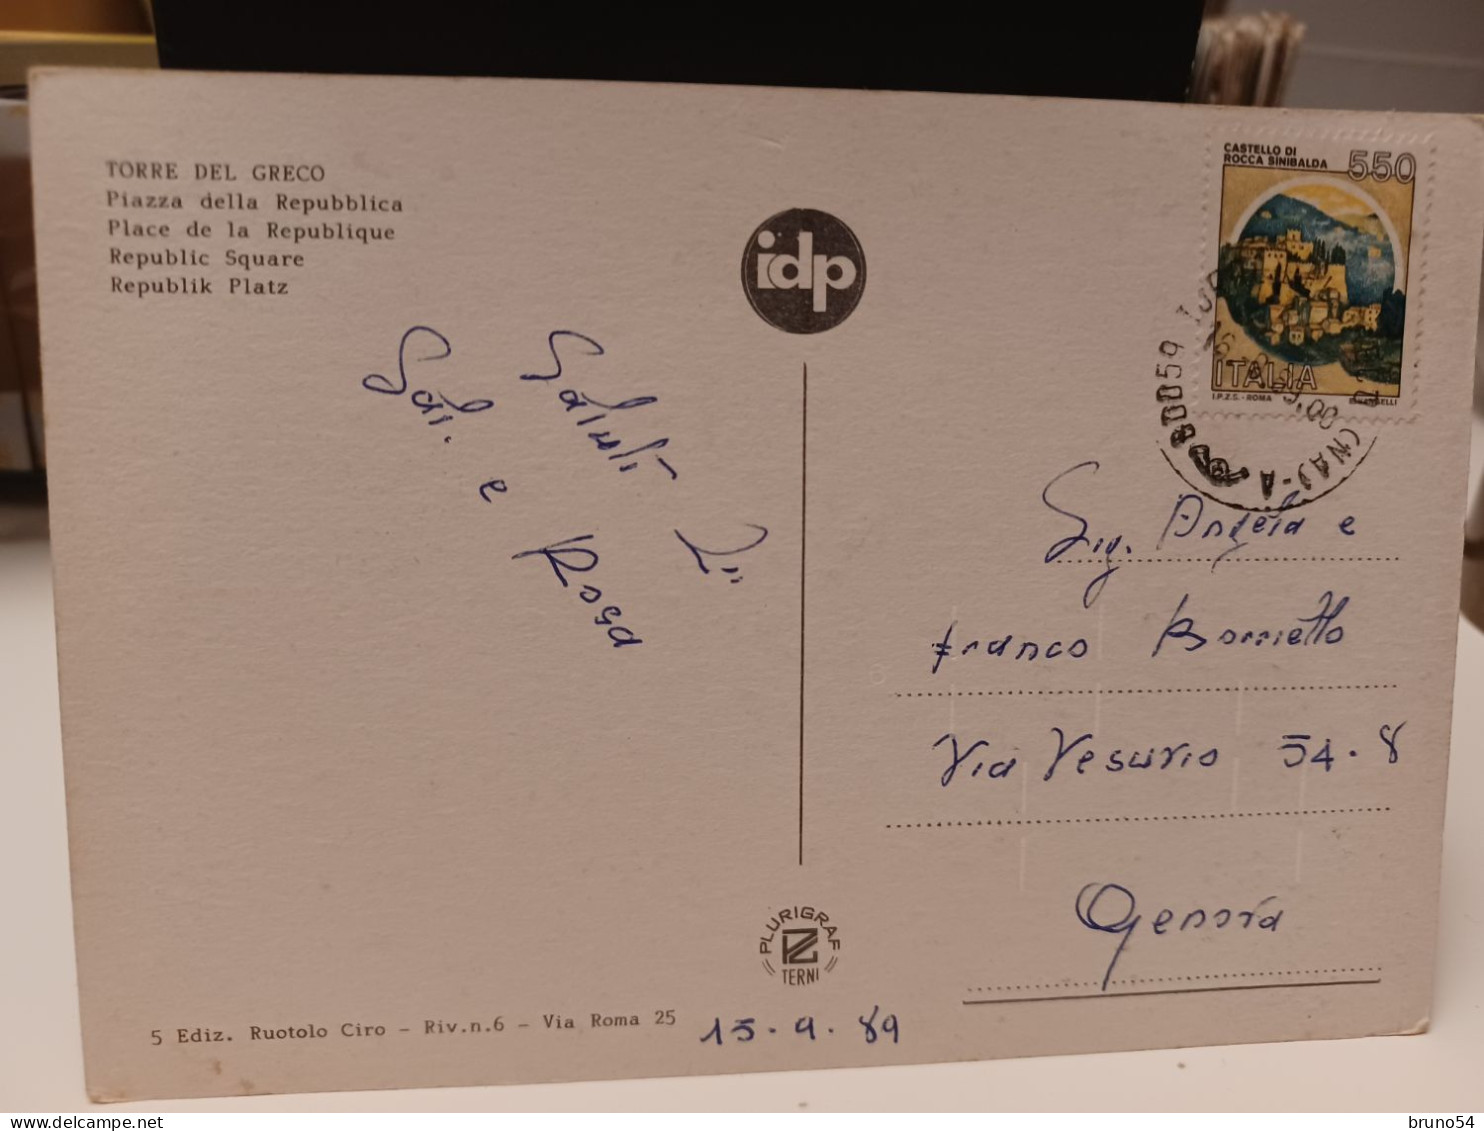 TORRE DEL GRECO
Piazza della Repubblica
Place de la Republique
Republic Square
Republik Platz
idp
CASTELLO DI
ROCCA SINIBALDA
550
ITALIA
I.P.Z.S. - ROMA
80059
Saluti
Sal. e Rosa
Sig. Angela e
Franco Borriello
Via Vesuvio 54.8
Genova
PLURIGRAF
TERNI
5 Ediz. Ruotolo Ciro - Riv.n.6 - Via Roma 25
15.9.89
delcampe.net
bruno54